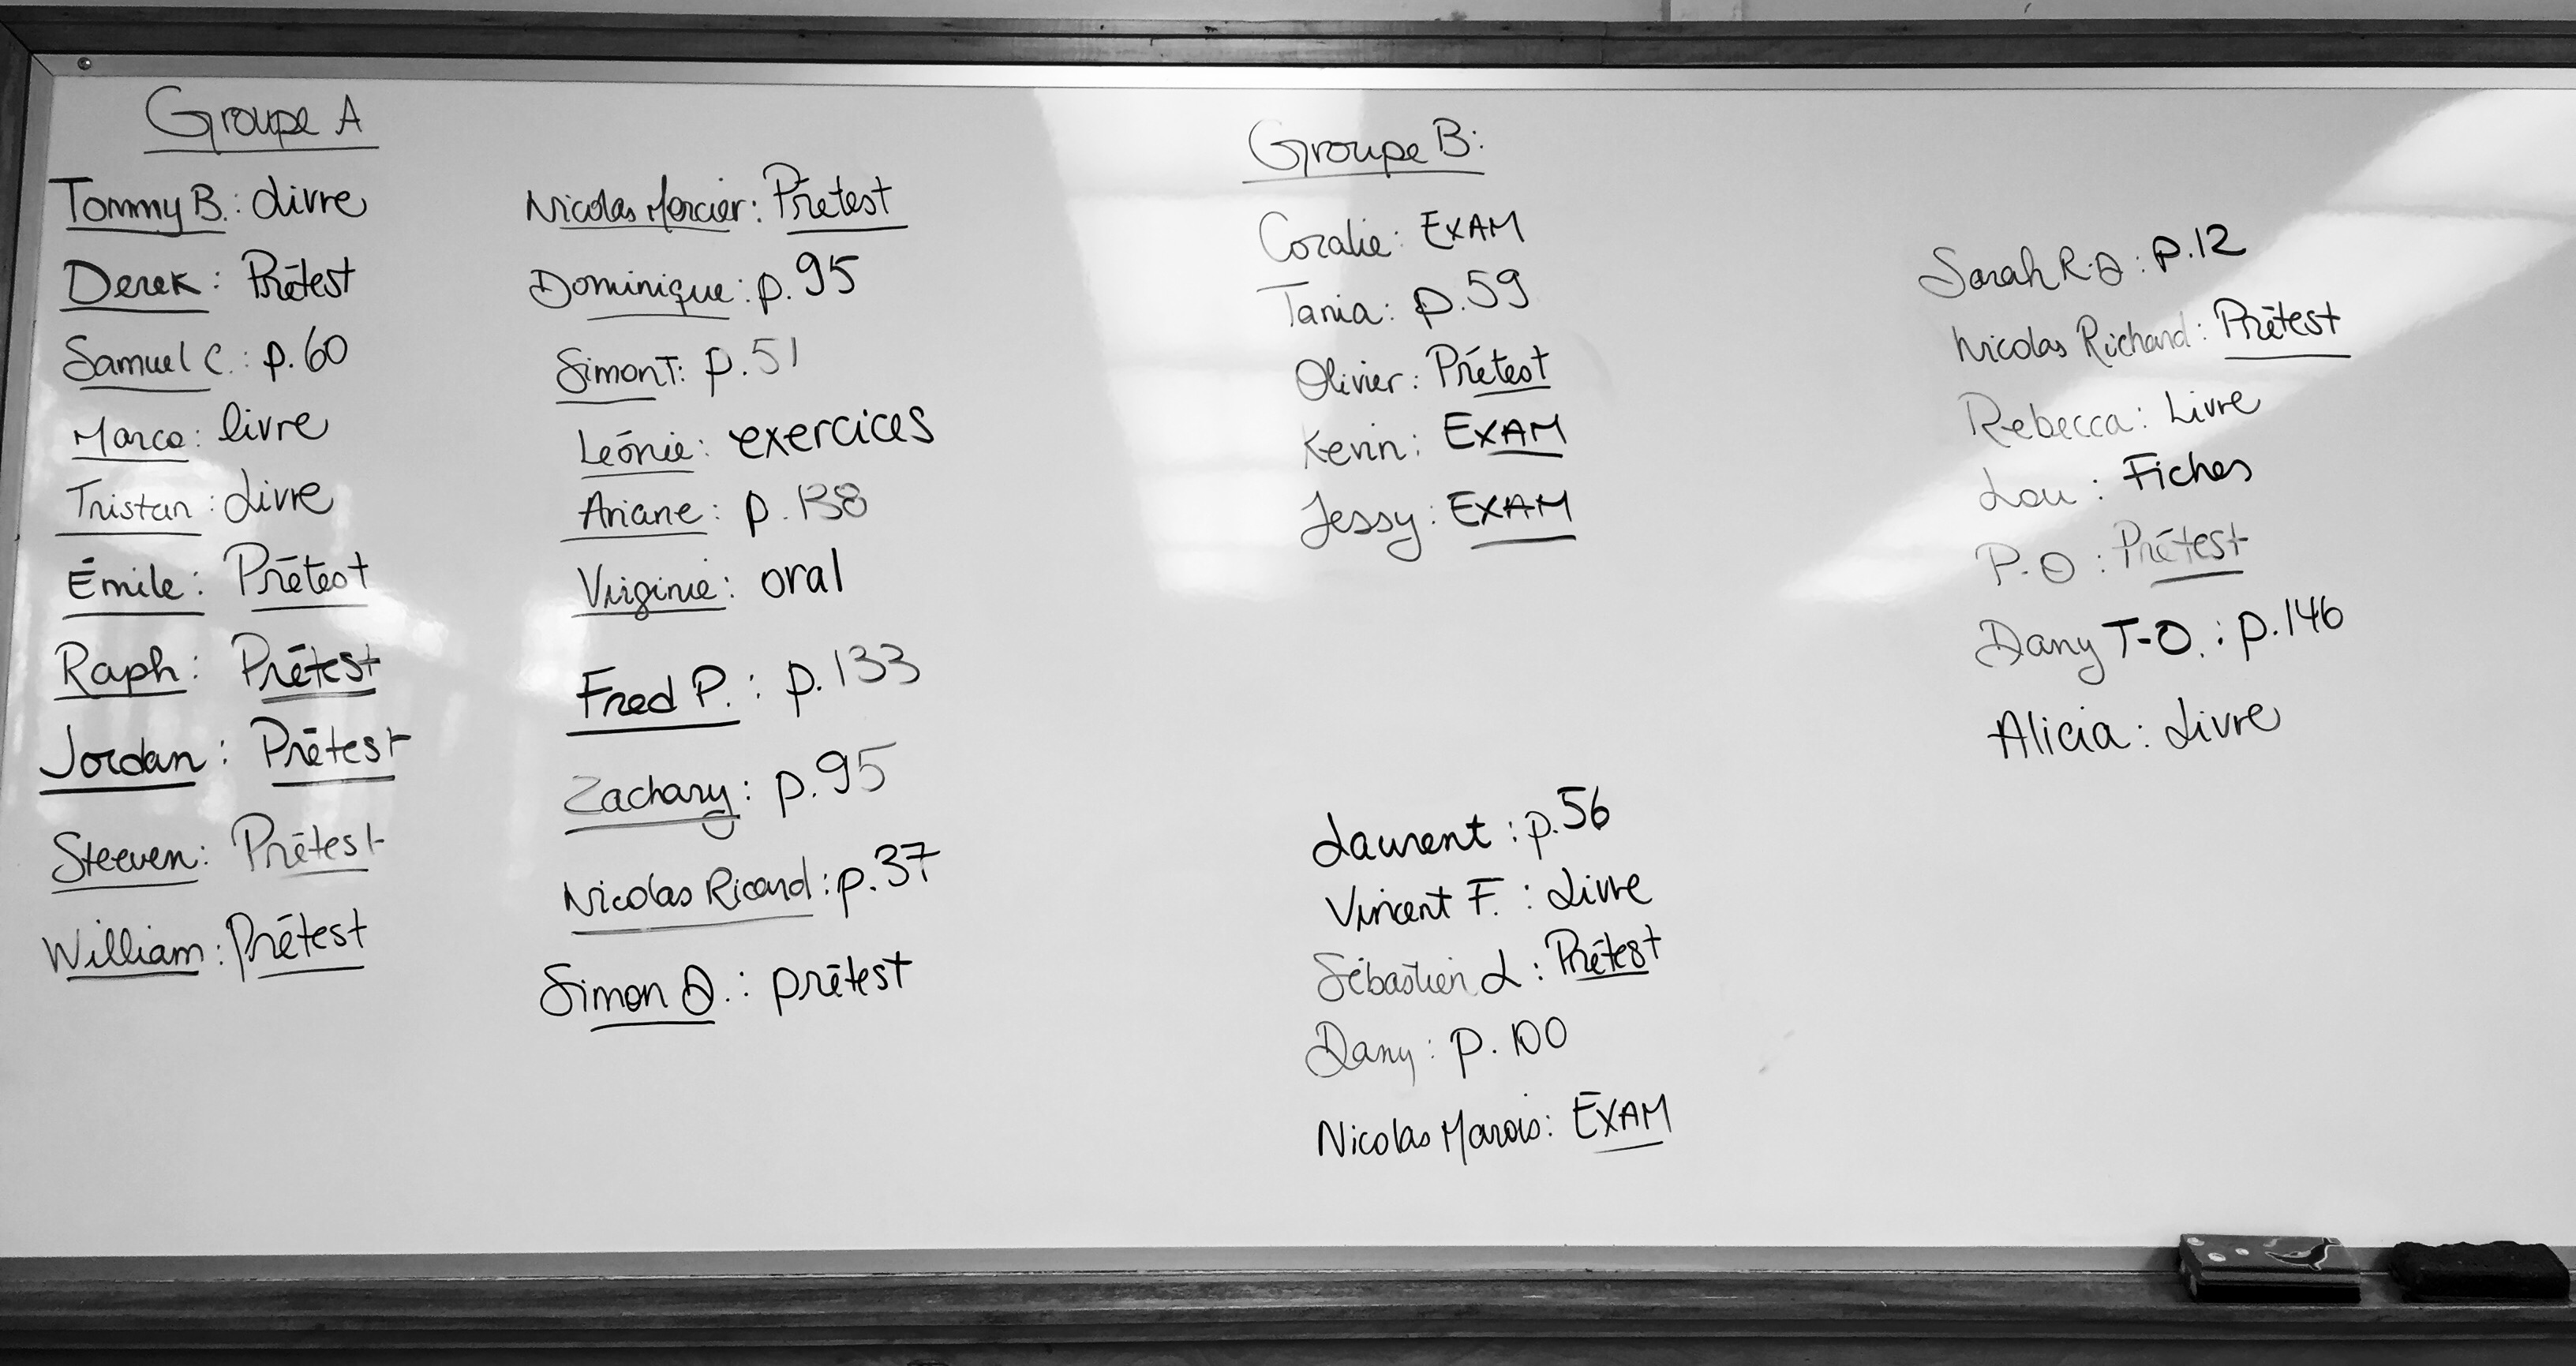 Groupe A
Tommy B.: Livre
Derek: Prétest
Samuel C.: p.60
Marco: livre
Tristan: Livre
Émile: Prétest
Raph: Prétest
Jordan: Prétest
Steeven: Prétest
William: Prétest
Nicolas Mercier: Prétest
Dominique: p.95
Simon T: p.51
Léonie: exercices
Ariane: p.138
Virginie: oral
Fred P.: p.133
Zachary: p.95
Nicolas Ricard: p.37
Simon O.: prétest
Groupe B:
Coralie: EXAM
Tania: p.59
Olivier: Prétest
Kevin: EXAM
Jessy: EXAM
Laurent: p.56
Vincent F.: Livre
Sébastien L: Prétest
Dany: p.100
Nicolas Marois: EXAM
Sarah R.O: p.12
Nicolas Richard: Prétest
Rebecca: Livre
Lou: Fiches
P.O: Prétest
Dany T-O.: p.146
Alicia: Livre